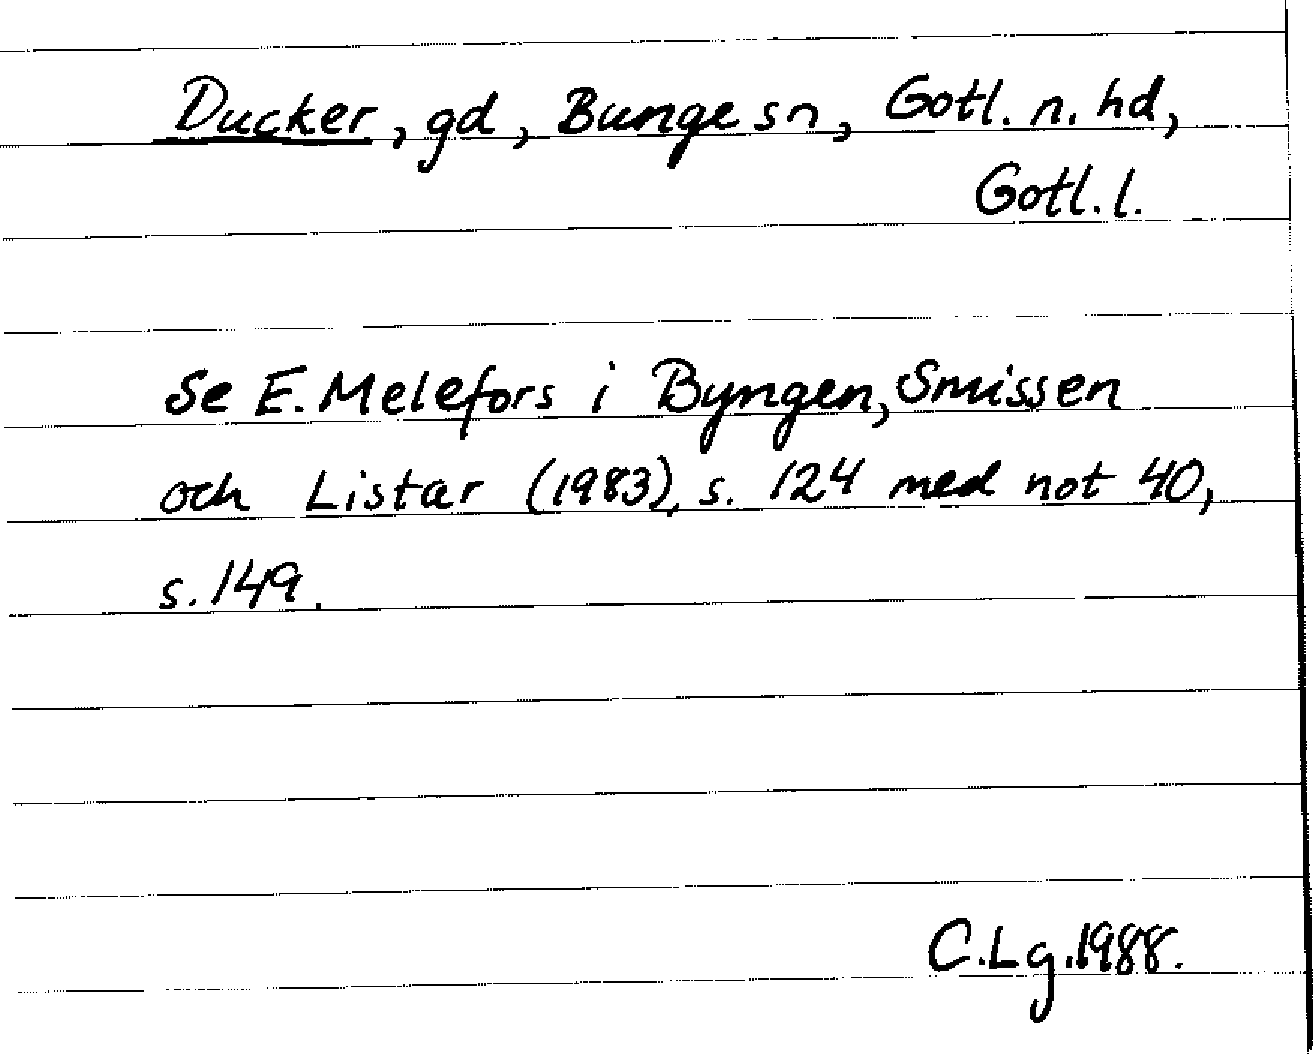 Ducker, gd, Bunge sn, Gotl. n. hd,
Gotl. l.
Se E. Melefors i Byngen, Smissen
och Listar (1983), s. 124 med not 40,
s. 149.
C.Lg. 1988.